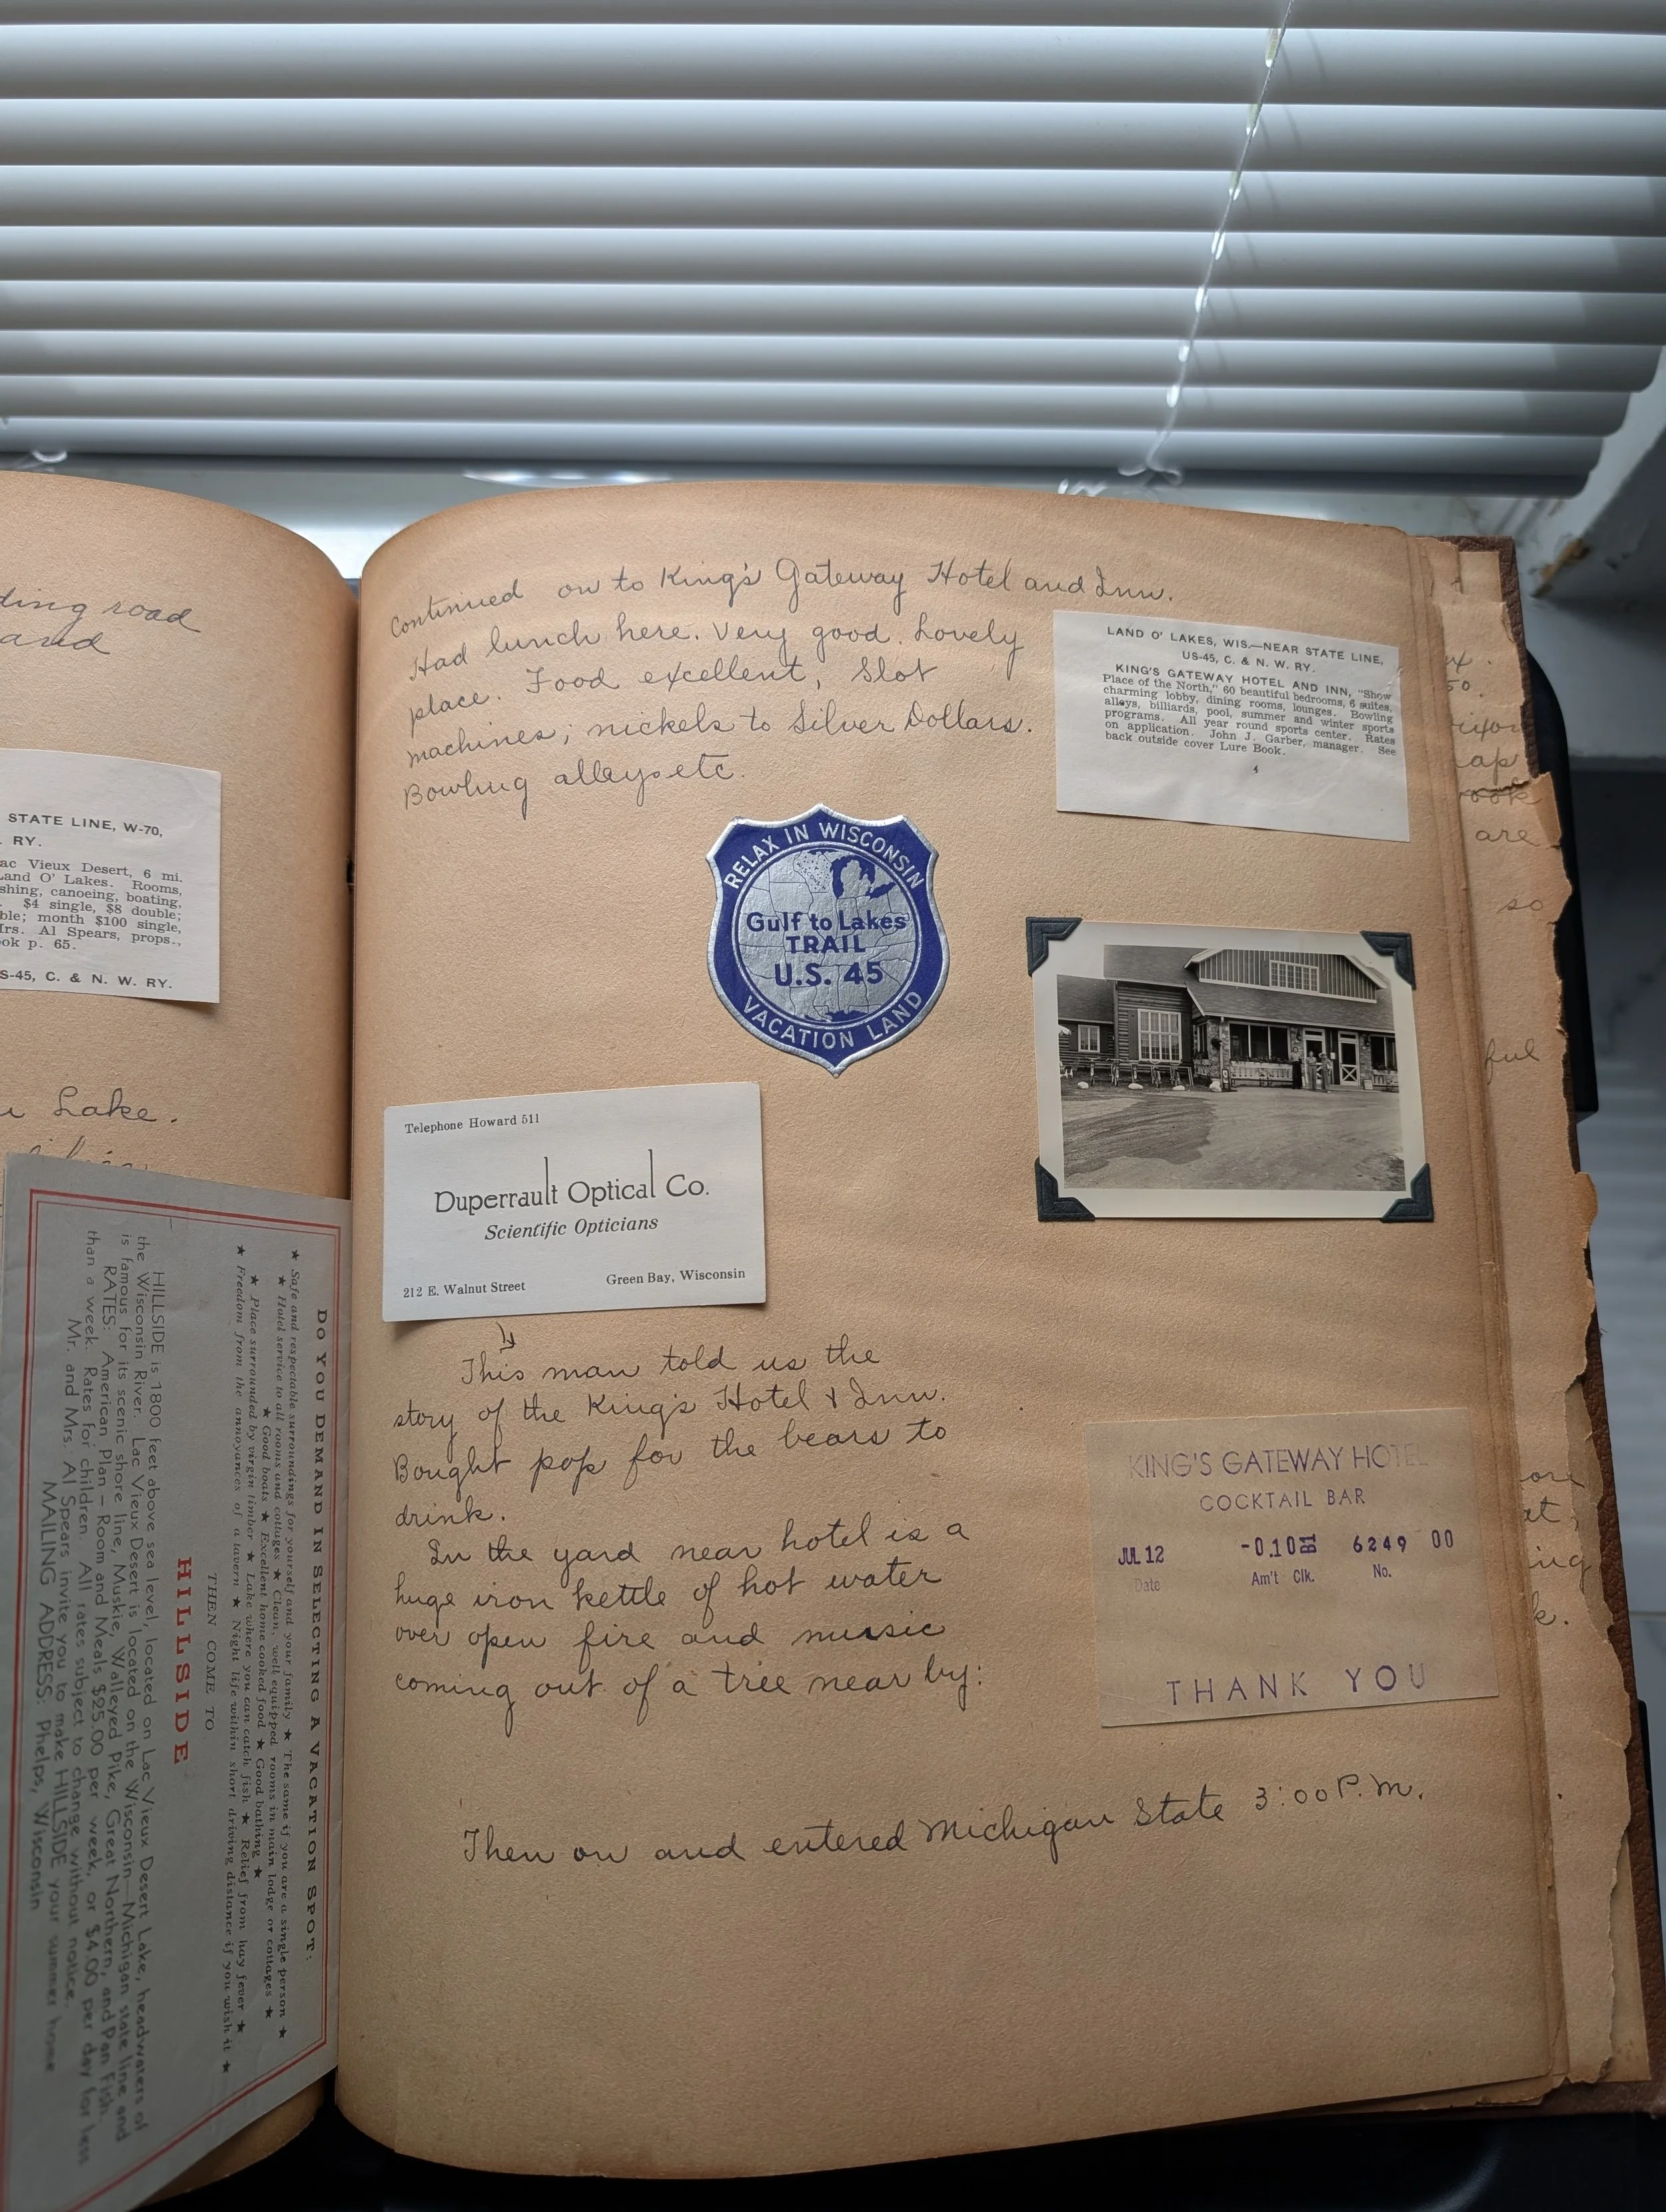 ding road
and
STATE LINE, W-70,
RY.
ac Vieux Desert, 6 mi.
Land O' Lakes. Rooms,
shing, canoeing, boating,
$4 single, $8 double;
ble; month $100 single,
Mrs. Al Spears, props.,
ook p. 65.
S-45, C. & N. W. RY.
Lake.
DO YOU DEMAND IN SELECTING A VACATION SPOT:
★ Safe and respectable surroundings for yourself and your family ★ The same if you are a single person ★
★ Hotel service to all rooms and cottages ★ Clean, well equipped rooms in main lodge or cottages ★
★ Good boats ★ Excellent home cooked food ★ Good bathing ★
★ Place surrounded by virgin timber ★ Lake where you can catch fish ★ Relief from hay fever ★
★ Freedom from the annoyances of a tavern ★ Night life within short driving distance if you wish it ★
THEN COME TO
HILLSIDE
HILLSIDE is 1800 feet above sea level, located on Lac Vieux Desert Lake, headwaters of
the Wisconsin River. Lac Vieux Desert is located on the Wisconsin—Michigan state line and
is famous for its scenic shore line, Muskie, Walleyed Pike, Great Northern, and Pan Fish.
RATES: American Plan – Room and Meals $25.00 per week, or $4.00 per day for less
than a week. Rates for children. All rates subject to change without notice.
Mr. and Mrs. Al Spears invite you to make HILLSIDE your summer home
MAILING ADDRESS: Phelps, Wisconsin
Continued on to King's Gateway Hotel and Inn.
Had lunch here. Very good. Lovely
place. Food excellent, Slot
machines; nickels to Silver Dollars.
Bowling alleys etc.
LAND O' LAKES, WIS.—NEAR STATE LINE,
US-45, C. & N. W. RY.
KING'S GATEWAY HOTEL AND INN, "Show
Place of the North," 60 beautiful bedrooms, 6 suites,
charming lobby, dining rooms, lounges. Bowling
alleys, billiards, pool, summer and winter sports
programs. All year round sports center. Rates
on application. John J. Garber, manager. See
back outside cover Lure Book.
4
RELAX IN WISCONSIN
Gulf to Lakes
TRAIL
U.S. 45
VACATION LAND
Telephone Howard 511
Duperrault Optical Co.
Scientific Opticians
212 E. Walnut Street Green Bay, Wisconsin
This man told us the
story of the King's Hotel & Inn.
Bought pop for the bears to
drink.
In the yard near hotel is a
huge iron kettle of hot water
over open fire and music
coming out of a tree near by:
KING'S GATEWAY HOTEL
COCKTAIL BAR
JUL 12 -0.10 6249 00
Date Am't Clk. No.
THANK YOU
Then on and entered Michigan State 3:00 P.M.
50.
ap
are
so
ful
ing
k.